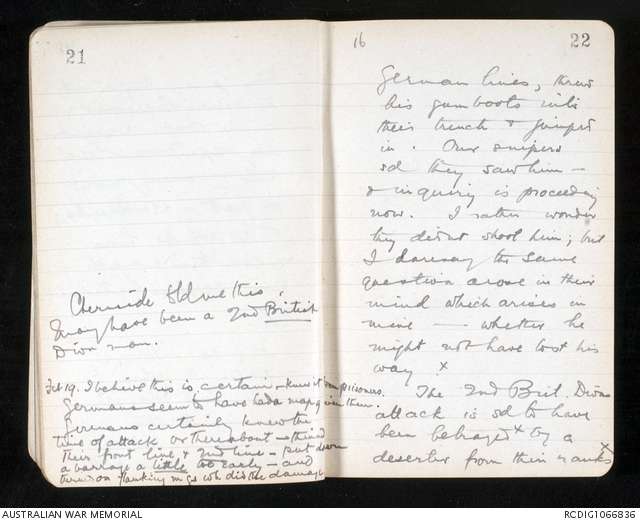 21
Chermside told me this.
May have been a 2nd British
Divn man.
Feb 19. I believe this is certain - knew it from prisoners.
Germans seem to have had a map given them.
Germans certainly knew the
time of attack or thereabout - thinned
their front line & 2nd line - put down
a barrage a little too early - and
turned on flanking m gs wh did the damage
16
22
German lines, threw
his gumboots into
their trench & jumped
in. Our snipers
sd they saw him -
& inquiry is proceeding
now. I rather wonder
they didnt shoot him; but
I daresay the same
question arose in their
mind which arises in
mine — whether he
might not have lost his
way x
The 2nd Brit. Divns
attack is sd to have
been betrayed x by a
deserter from their ranks x
AUSTRALIAN WAR MEMORIAL
RCDIG1066836